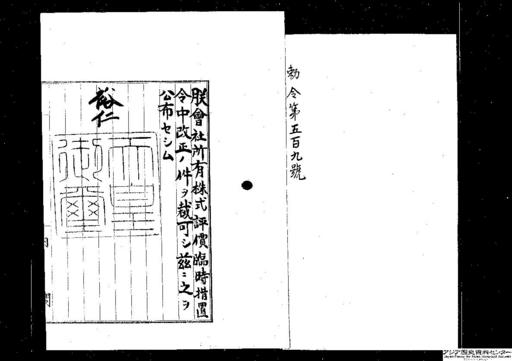 勅令第五百九號
朕會社所有株式評價臨時措置
令中改正ノ件ヲ裁可シ茲ニ之ヲ
公布セシム
裕仁
天皇
御璽
内閣
アジア歴史資料センター